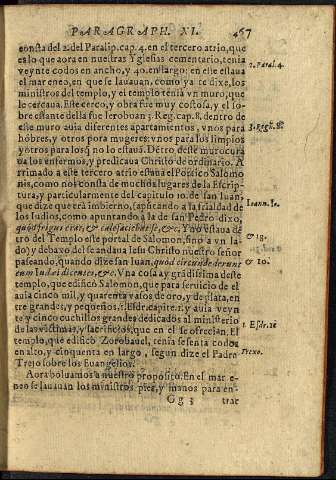 PARAGRAPH. XI. 467
consta del 2. del Paralip. cap. 4. en el tercero atrio, que
es lo que aora en nuestras Yglesias cementario, tenia
veynte codos en ancho, y 40. en largo: en elle estaua
el mar eneo, en que se lauauan, como ya te dixe, los
ministros del templo, y el templo tenia vn muro, que
le cercaua. Este cerco, y obra fue muy costosa, y el so-
bre estante della fue Ieroboan 3. Reg. cap. 8. dentro de
este muro auia diferentes apartamientos, vnos para
hõbres, y otros para mugeres: vnos para los limpios
y otros para los q̃ no lo estauã. Dẽtro deste muro cura
ua los enfermos, y predicaua Christo de ordinario. A
rrimado a este tercero atrio estaua el Portico Salomo
nis, como nos consta de muchos lugares de la Escrip-
tura, y particularmente del capitulo 10. de san Iuan
que dize que era imbierno, (aspirando a la frialdad de
los Iudios, como apuntando à la de san Pedro dixo,
quod frigus erat, & calefaciebat se, &c. Y no estaua dẽ
tro del Templo este portal de Salomon, sino a vn la-
do; y debaxo del se andaua Iesu Christo nuestro señor
paseando, quando dize san Iuan, quod circundederunt
eum Iudæi dicentes, &c. Vna cosa ay grãdissima deste
templo, que edificò Salomon, que para seruicio de el
auia cinco mil, y quarenta vasos de oro, y de plata, en
tre grandes, y pequeños, 1. Esdr. capit. 1. y auia veyn
te y cinco cuchillos grandes dedicados al ministerio
de las victimas, y sacrificios, que en el se ofrecian. El
templo, que edificò Zorobauel, tenia sesenta codos
en alto, y cinquenta en largo, segun dize el Padre
Trejo sobre los Euangelios.
Aora boluamos a nuestro proposito. En el mar e-
neo se lauauan los ministros pies, y manos para en-
Gg 3 trar
2. Paral. 4.
3. Reg. 8.
Ioann. 10.
& 18.
& 10.
1. Esdr. 1.
Trexo.